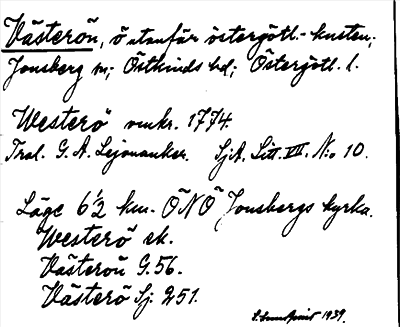 Västerön, ö utanför östergötl.-kusten;
Jonsberg sn; Östkinds hd; Östergötl. l.
Westerö omkr. 1774.
Tral. G. A. Lejonanker. SjA. Litt. VII. N:o 10.
Läge 6½ km. ÖNÖ Jonsbergs kyrka.
Westerö ek.
Västerön G.56.
Västerö Sj 251.
1939.